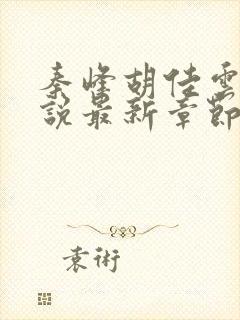 秦峰胡佳雲
說最新章節
袁術